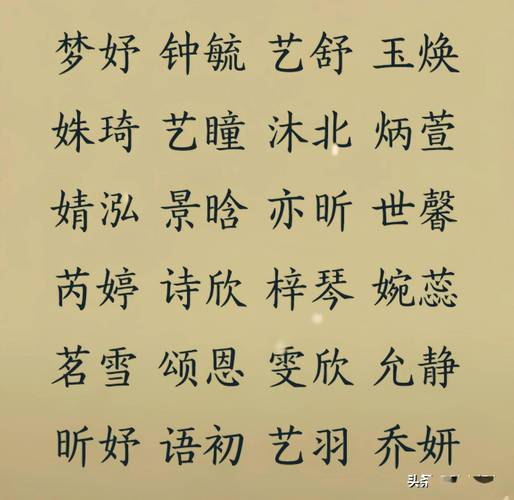 梦妤 钟毓 艺舒 玉焕
姝琦 艺瞳 沐北 炳萱
婧泓 景晗 亦昕 世馨
芮婷 诗欣 梓琴 婉蕊
茗雪 颂恩 雯欣 允静
昕妤 语初 艺羽 乔妍
头条